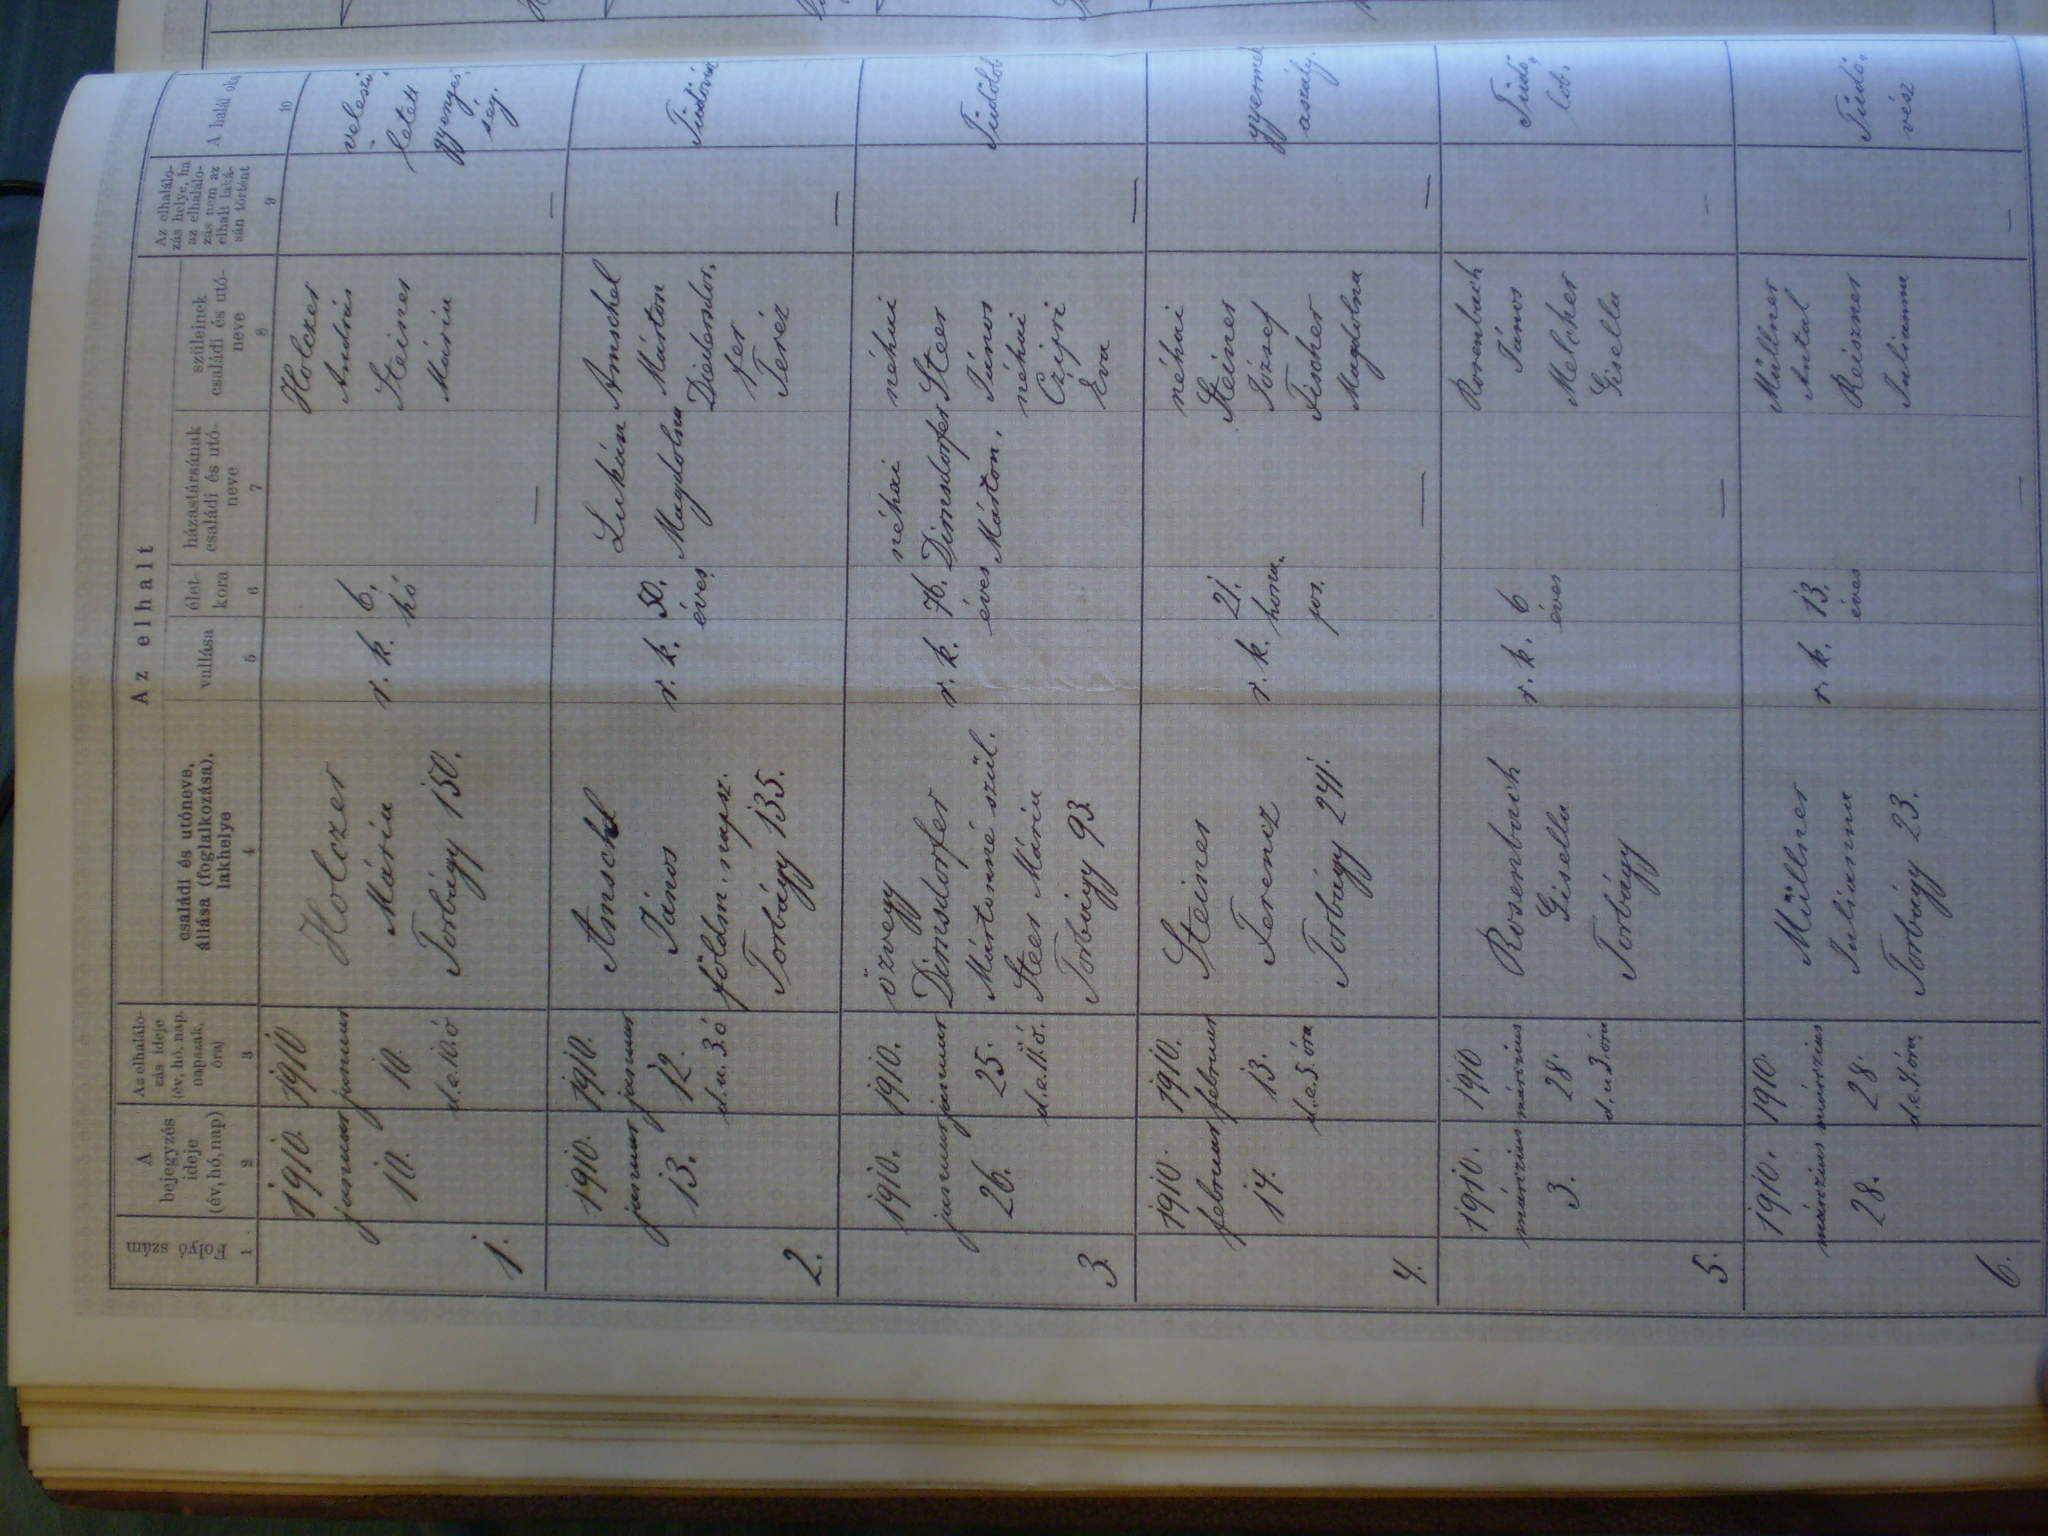 Az elhalt
Folyó szám
A bejegyzés ideje (év, hó, nap)
Az elhalálo-
zás ideje
(év, hó, nap,
napszak,
óra)
családi és utóneve,
állása (foglalkozása),
lakhelye
vallása
élet-
kora
házastársának
családi és utó-
neve
szüleinek
családi és utó-
neve
Az elhalálo-
zás helye, ha
az elhalálo-
zás nem az
elhalt laká-
sán történt
A halál oka
1
2
3
4
5
6
7
8
9
10
1.
1910.
januar
10.
1910
januar
10.
d.e.10.ó
Holczer
Mária
Torbágy 150.
r. k.
6.
hó
—
Holczer
András
Steiner
Mária
—
veleszü-
letett
gyenge-
ség.
2.
1910.
januar
13.
1910.
januar
12.
d.u.3.ó
Amschel
János
földm. napsz.
Torbágy 135.
r. k.
50.
éves
Lukán
Magdolna
Amschel
Márton
Diendor-
fer
Teréz
—
Tüdővész
3.
1910.
januar
26.
1910.
januar
25.
d.e.11.ó.
özvegy
Dimsdorfer
Mártonné szül.
Steer Mária
Torbágy 93
r. k.
76.
éves
néhai
Dimsdorfer
Márton.
néhai
Steer
János
néhai
Czipri
Éva
—
Tüdőlob
4.
1910.
februar
14.
1910.
februar
13.
d.e.5.óra
Steiner
Ferencz
Torbágy 241.
r. k.
21.
hóna-
pos.
—
néhai
Steiner
József
Fischer
Magdolna
—
gyermek
aszály.
5.
1910.
márczius
3.
1910
márczius
d.u.3.óra
Rosenbach
Gisella
Torbágy
r. k.
6
éves
—
Rosenbach
János
Melcher
Gisella
—
Tüdő-
lob.
6.
1910.
márczius
28.
1910.
márczius
28
Müllner
Julianna
Torbágy 23.
r. k.
13.
éves
—
Müllner
Antal
Reiszner
Julianna
—
Tüdő-
vész